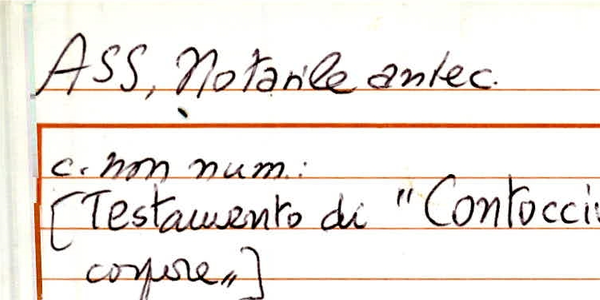 ASS, Notarile antec.
c. non num.:
[Testamento di "Contocci
corpore"]